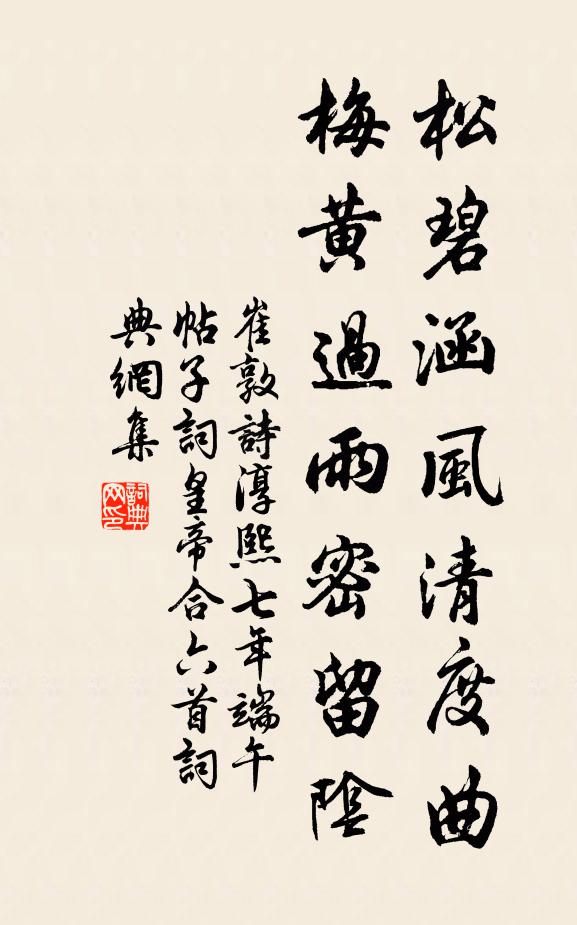 松碧涵風清度曲
梅黃過雨密留陰
崔敦詩淳熙七年端午
帖子詞皇帝合六首詞
典網集
詞典
网印